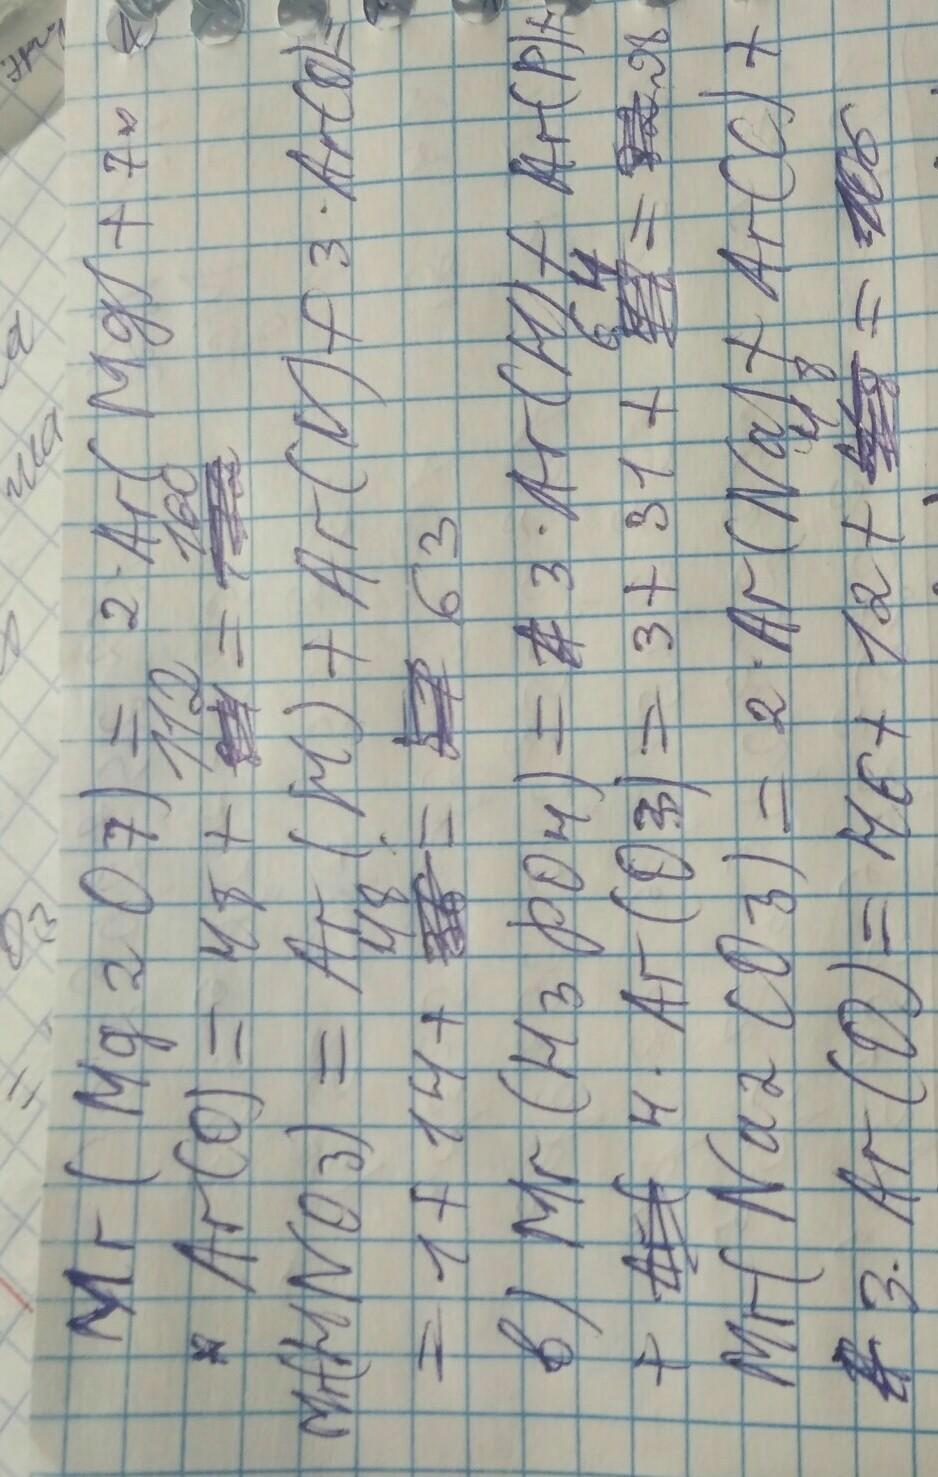 Mr(Mg2O7) = 2·Ar(Mg) + 7*
* Ar(O) = 48 + 112 = 160
Mr(HNO3) = Ar(H) + Ar(N) + 3·Ar(O) =
= 1 + 14 + 48 = 63
в) Mr(H3PO4) = 3·Ar(H) + Ar(P) +
+ 4·Ar(O3) = 3 + 31 + 64 = 98
Mr(Na2CO3) = 2·Ar(Na) + Ar(C) +
3·Ar(O) = 46 + 12 + 48 = 106